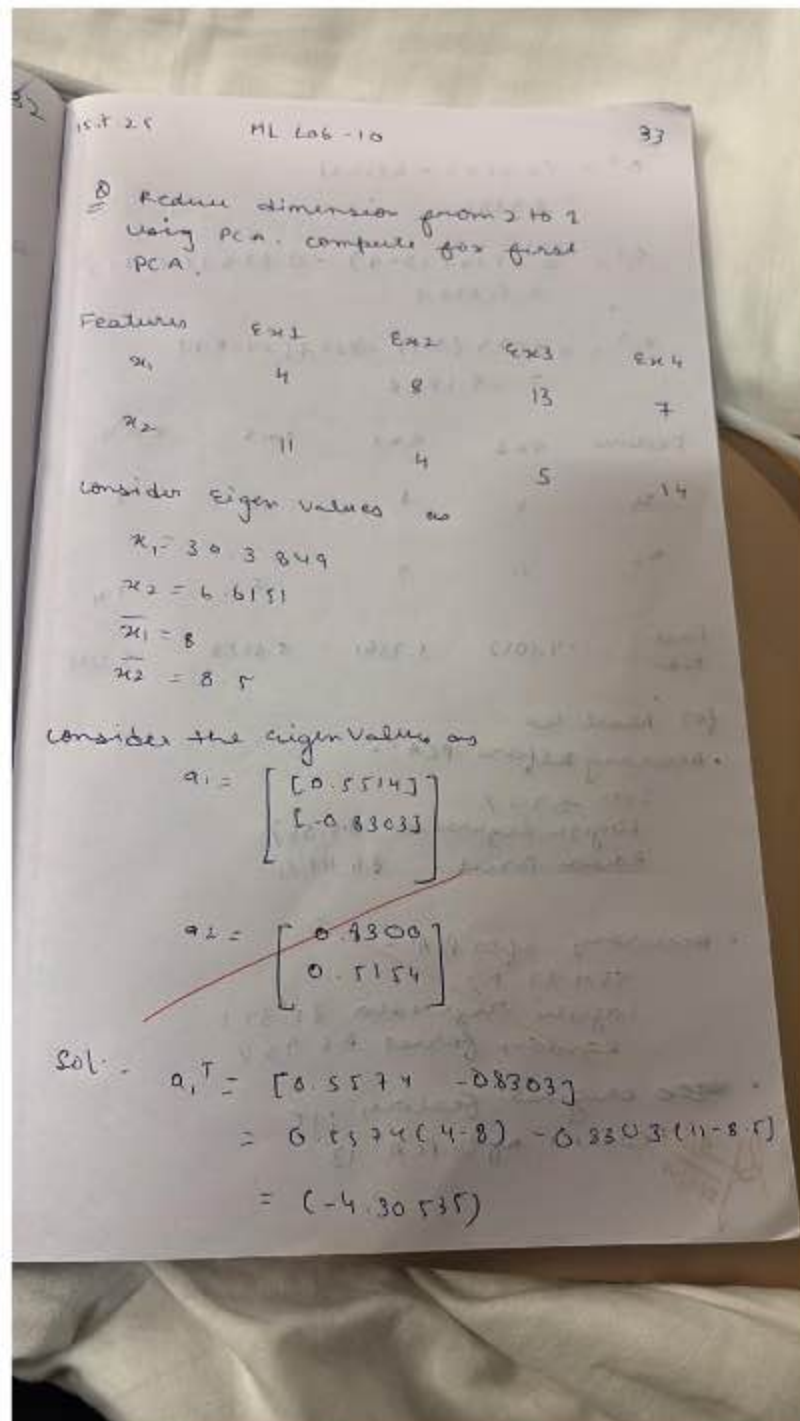 32
15.7 25 ML Lab - 10 33
Q Reduce dimension from 2 to 1
using PCA. compute for first
PCA.
Features Ex1 Ex2 Ex3 Ex4
x₁ 4 8 13 7
x₂ 11 4 5 14
consider Eigen values as
x₁ = 30.3849
x₂ = 6.6151
x̄₁ = 8
x̄₂ = 8.5
consider the eigen values as
a₁ = [[0.5514]
[-0.8303]]
a₂ = [0.8300
0.5154]
Sol. -
a₁ᵀ = [0.5574 -08303]
= 0.5574(4-8) -0.8303(11-8.5)
= (-4.30535)